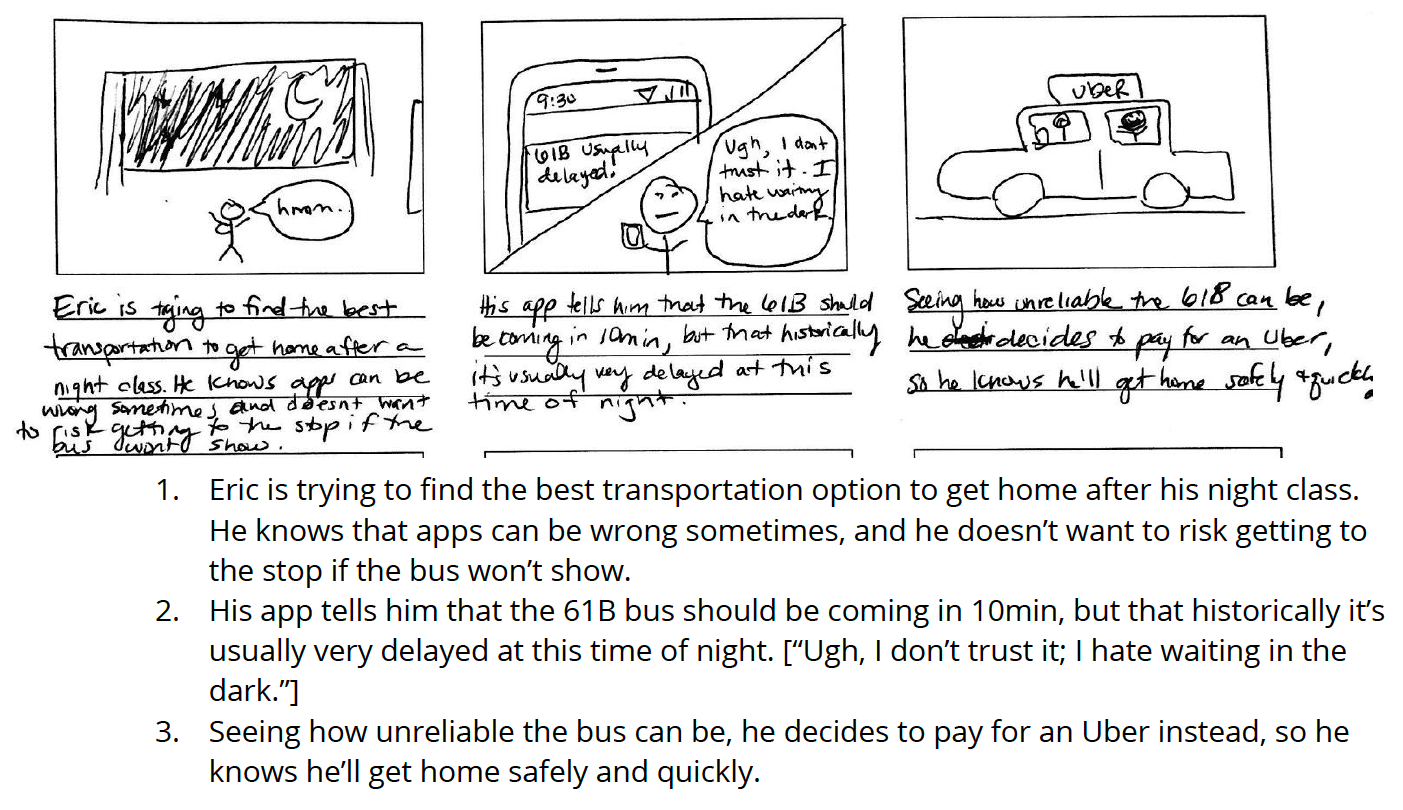 hmm.
Eric is trying to find the best
transportation to get home after a
night class. He knows apps can be
wrong sometimes, and doesn't want
to risk getting to the stop if the
bus won't show.
9:30
61B usually
delayed!
Ugh, I don't
trust it. I
hate waiting
in the dark.
His app tells him that the 61B should
be coming in 10min, but that historically
it's usually very delayed at this
time of night.
Uber
Seeing how unreliable the 61B can be,
he decides to pay for an Uber,
so he knows he'll get home safely & quickly.
1. Eric is trying to find the best transportation option to get home after his night class.
He knows that apps can be wrong sometimes, and he doesn’t want to risk getting to
the stop if the bus won’t show.
2. His app tells him that the 61B bus should be coming in 10min, but that historically it’s
usually very delayed at this time of night. [“Ugh, I don’t trust it; I hate waiting in the
dark.”]
3. Seeing how unreliable the bus can be, he decides to pay for an Uber instead, so he
knows he’ll get home safely and quickly.